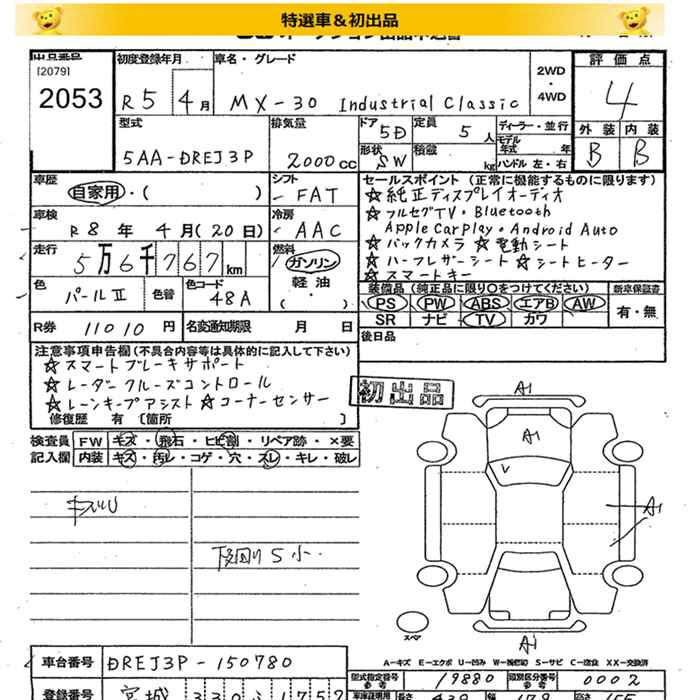 特選車&初出品
出品番号
[2079]
2053
初度登録年月
R5 4月
車名・グレード
MX-30 Industrial Classic
2WD
・
4WD
評価点
4
外装 内装
B B
型式
5AA-DREJ3P
排気量
2000cc
ドア 5D
形状 SW
定員 5人
積載 kg
ディーラー・並行
モデル年式 年
ハンドル 左・右
車歴
自家用・( )
シフト
FAT
セールスポイント (正常に機能するものに限ります)
☆純正ディスプレイオーディオ
☆フルセグTV・Bluetooth
Apple Carplay・Android Auto
☆バックカメラ ☆電動シート
☆ハーフレザーシート ☆シートヒーター
☆スマートキー
車検
R8年 4月(20日)
冷房
AAC
走行
5万6千767km
燃料
ガソリン
軽油
色
パールⅡ
色替
色コード
48A
装備品 (純正品に限り○をつけてください)
PS PW ABS エアB AW
SR ナビ TV カワ
新車保証書
有・無
R券 11010円
名変通知期限 月 日
後日品
注意事項申告欄(不具合内容等は具体的に記入して下さい)
☆スマートブレーキサポート
☆レーダークルーズコントロール
☆レーンキープアシスト ☆コーナーセンサー
修復歴 有 〔箇所 〕
初出品
検査員 FW キズ・飛石・ヒビ割・リペア跡・×要
記入欄 内装 キズ・汚レ・コゲ・穴・スレ・キレ・破レ
下回りS小
A1
A1
A1
A1
スペア
A―キズ E―エクボ U―凹み W―補修跡 S―サビ C―腐食 XX―交換済
車台番号 DREJ3P-150780
型式指定番号 19880
類別区分番号 0002
登録番号 宮城 330 175
長さ 439 幅 179 高さ 155